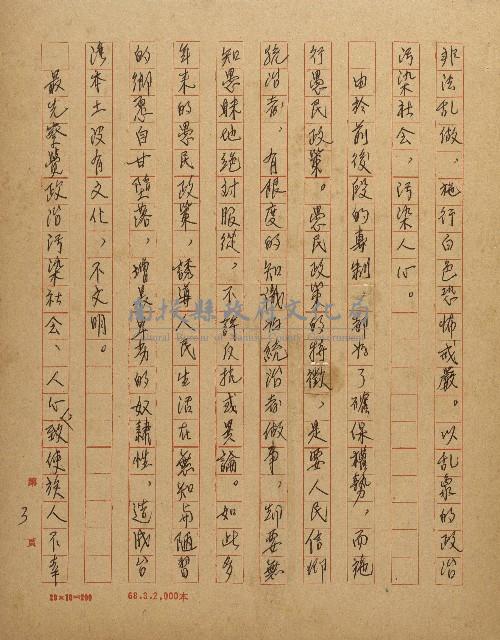 非法乱做，施行白色恐怖戒嚴。以乱象的政治
污染社会，污染人心。
由於前後段的專制都為了確保權勢，而施
行愚民政策。愚民政策的特徵，是要人民信仰
統治者，有限度的知識為統治者做事，却要無
知愚昧地絕对服從，不許反抗或異論。如此多
年来的愚民政策，誘導人民生活在無知与陋習
的鄉愿自甘墮落，增長卑劣的奴隸性，造成台
湾本土没有文化，不文明。
最先察覺政治污染社会、人心，致使族人不幸
第3頁
20×10=200
68.3.2,000本
南投縣政府文化局
Cultural Bureau of Nantou County Government